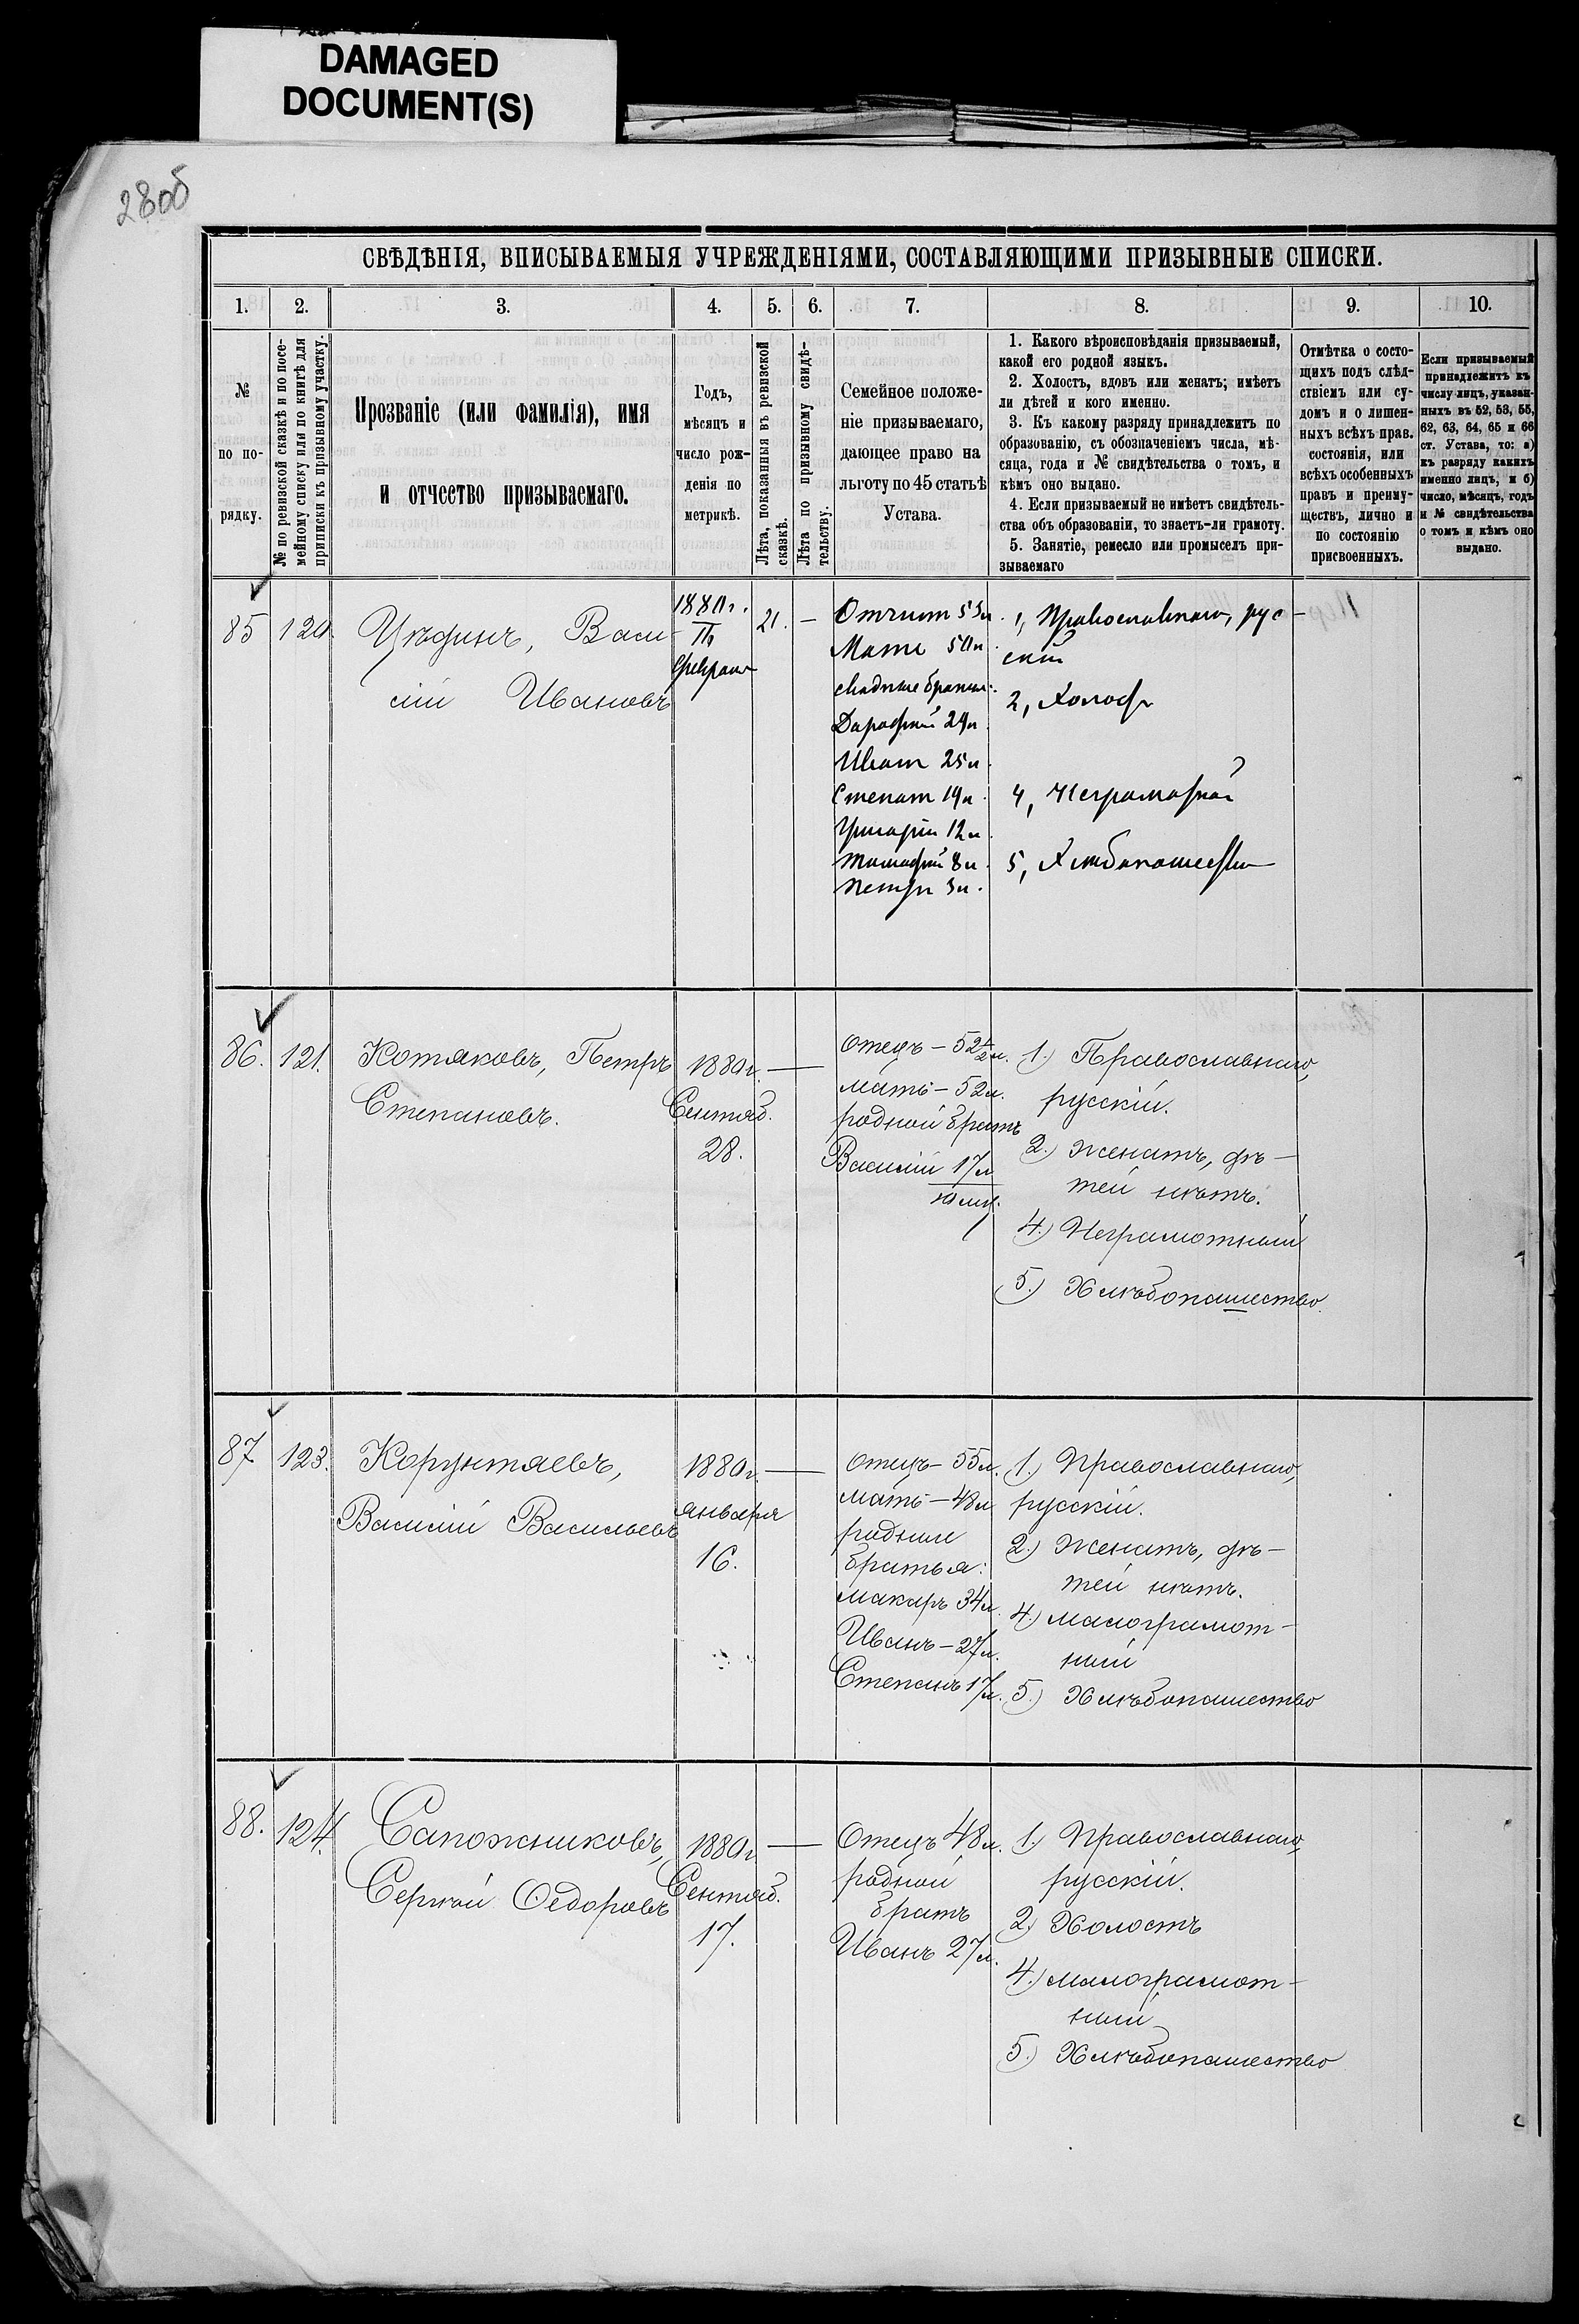 DAMAGED
DOCUMENT(S)
28об
СВѢДѢНІЯ, ВПИСЫВАЕМЫЯ УЧРЕЖДЕНІЯМИ, СОСТАВЛЯЮЩИМИ ПРИЗЫВНЫЕ СПИСКИ.
1.
2.
3.
4.
5.
6.
7.
8.
9.
10.
№
по по-
рядку.
№ по ревизской сказкѣ и по посе-
мейному списку или по книгѣ для
приписки къ призывному участку.
Прозваніе (или фамилія), имя
и отчество призываемаго.
Годъ,
мѣсяцъ и
число рож-
денія по
метрикѣ.
Лѣта, показанныя въ ревизской
сказкѣ.
Лѣта по призывному свидѣ-
тельству.
Семейное положе-
ніе призываемаго,
дающее право на
льготу по 45 статьѣ
Устава.
1. Какого вѣроисповѣданія призываемый,
какой его родной языкъ.
2. Холостъ, вдовъ или женатъ; имѣетъ
ли дѣтей и кого именно.
3. Къ какому разряду принадлежитъ по
образованію, съ обозначеніемъ числа, мѣ-
сяца, года и № свидѣтельства о томъ, и
кѣмъ оно выдано.
4. Если призываемый не имѣетъ свидѣтель-
ства объ образованіи, то знаетъ-ли грамоту.
5. Занятіе, ремесло или промыселъ при-
зываемаго
Отмѣтка о состо-
щихъ подъ слѣд-
ствіемъ или су-
домъ и о лишен-
ныхъ всѣхъ прав.
состоянія, или
всѣхъ особенныхъ
правъ и преиму-
ществъ, лично и
по состоянію
присвоенныхъ.
Если призываемый
принадлежитъ къ
числу лицъ, указан-
ныхъ въ 52, 53, 55,
62, 63, 64, 65 и 66
ст. Устава, то: а)
къ разряду какихъ
именно лицъ, и б)
число, мѣсяцъ, годъ
и № свидѣтельства
о томъ и кѣмъ оно
выдано.
85
120
Васи-
лій Ивановъ
1880г.
Февраля
21.
—
Отчим 53л.
Мать 50л.
сводные братья:
Дорофей 29л.
Иван 25л.
Степан 19л.
Григорій 12л.
Тимофей 8л.
Петръ 3л.
1, Православнаго, рус-
скій
2, Холост
4, Неграмотной
5, Хлебопашество
86.
121.
Котяковъ, Петръ
Степановъ.
1880г.
Сентяб.
28.
—
отецъ – 52
мать – 52л.
родной братъ
Василій 17л
1.) Православнаго,
русскій.
2.) Женатъ, дѣ-
тей нѣтъ.
4.) Неграмотный
5.) Хлѣбопашество.
87
123.
Корунтяевъ,
Василій Васильевъ
1880г.
января
16.
—
отецъ – 55л.
мать – 48л
родные
братья:
Макаръ 34л.
Иванъ – 27л.
Степанъ 17л.
1.) Православнаго,
русскій.
2.) Женатъ, дѣ-
тей нѣтъ.
4.) малограмот-
ный
5.) Хлѣбопашество
88.
124.
Сапожниковъ,
Сергѣй Ѳедоровъ
1880г
Сентяб.
17.
—
Отецъ 48л.
родной
братъ
Иванъ 27л.
1.) Православнаго,
русскій.
2.) Холостъ
4.) малограмот-
ный
5.) Хлѣбопашество